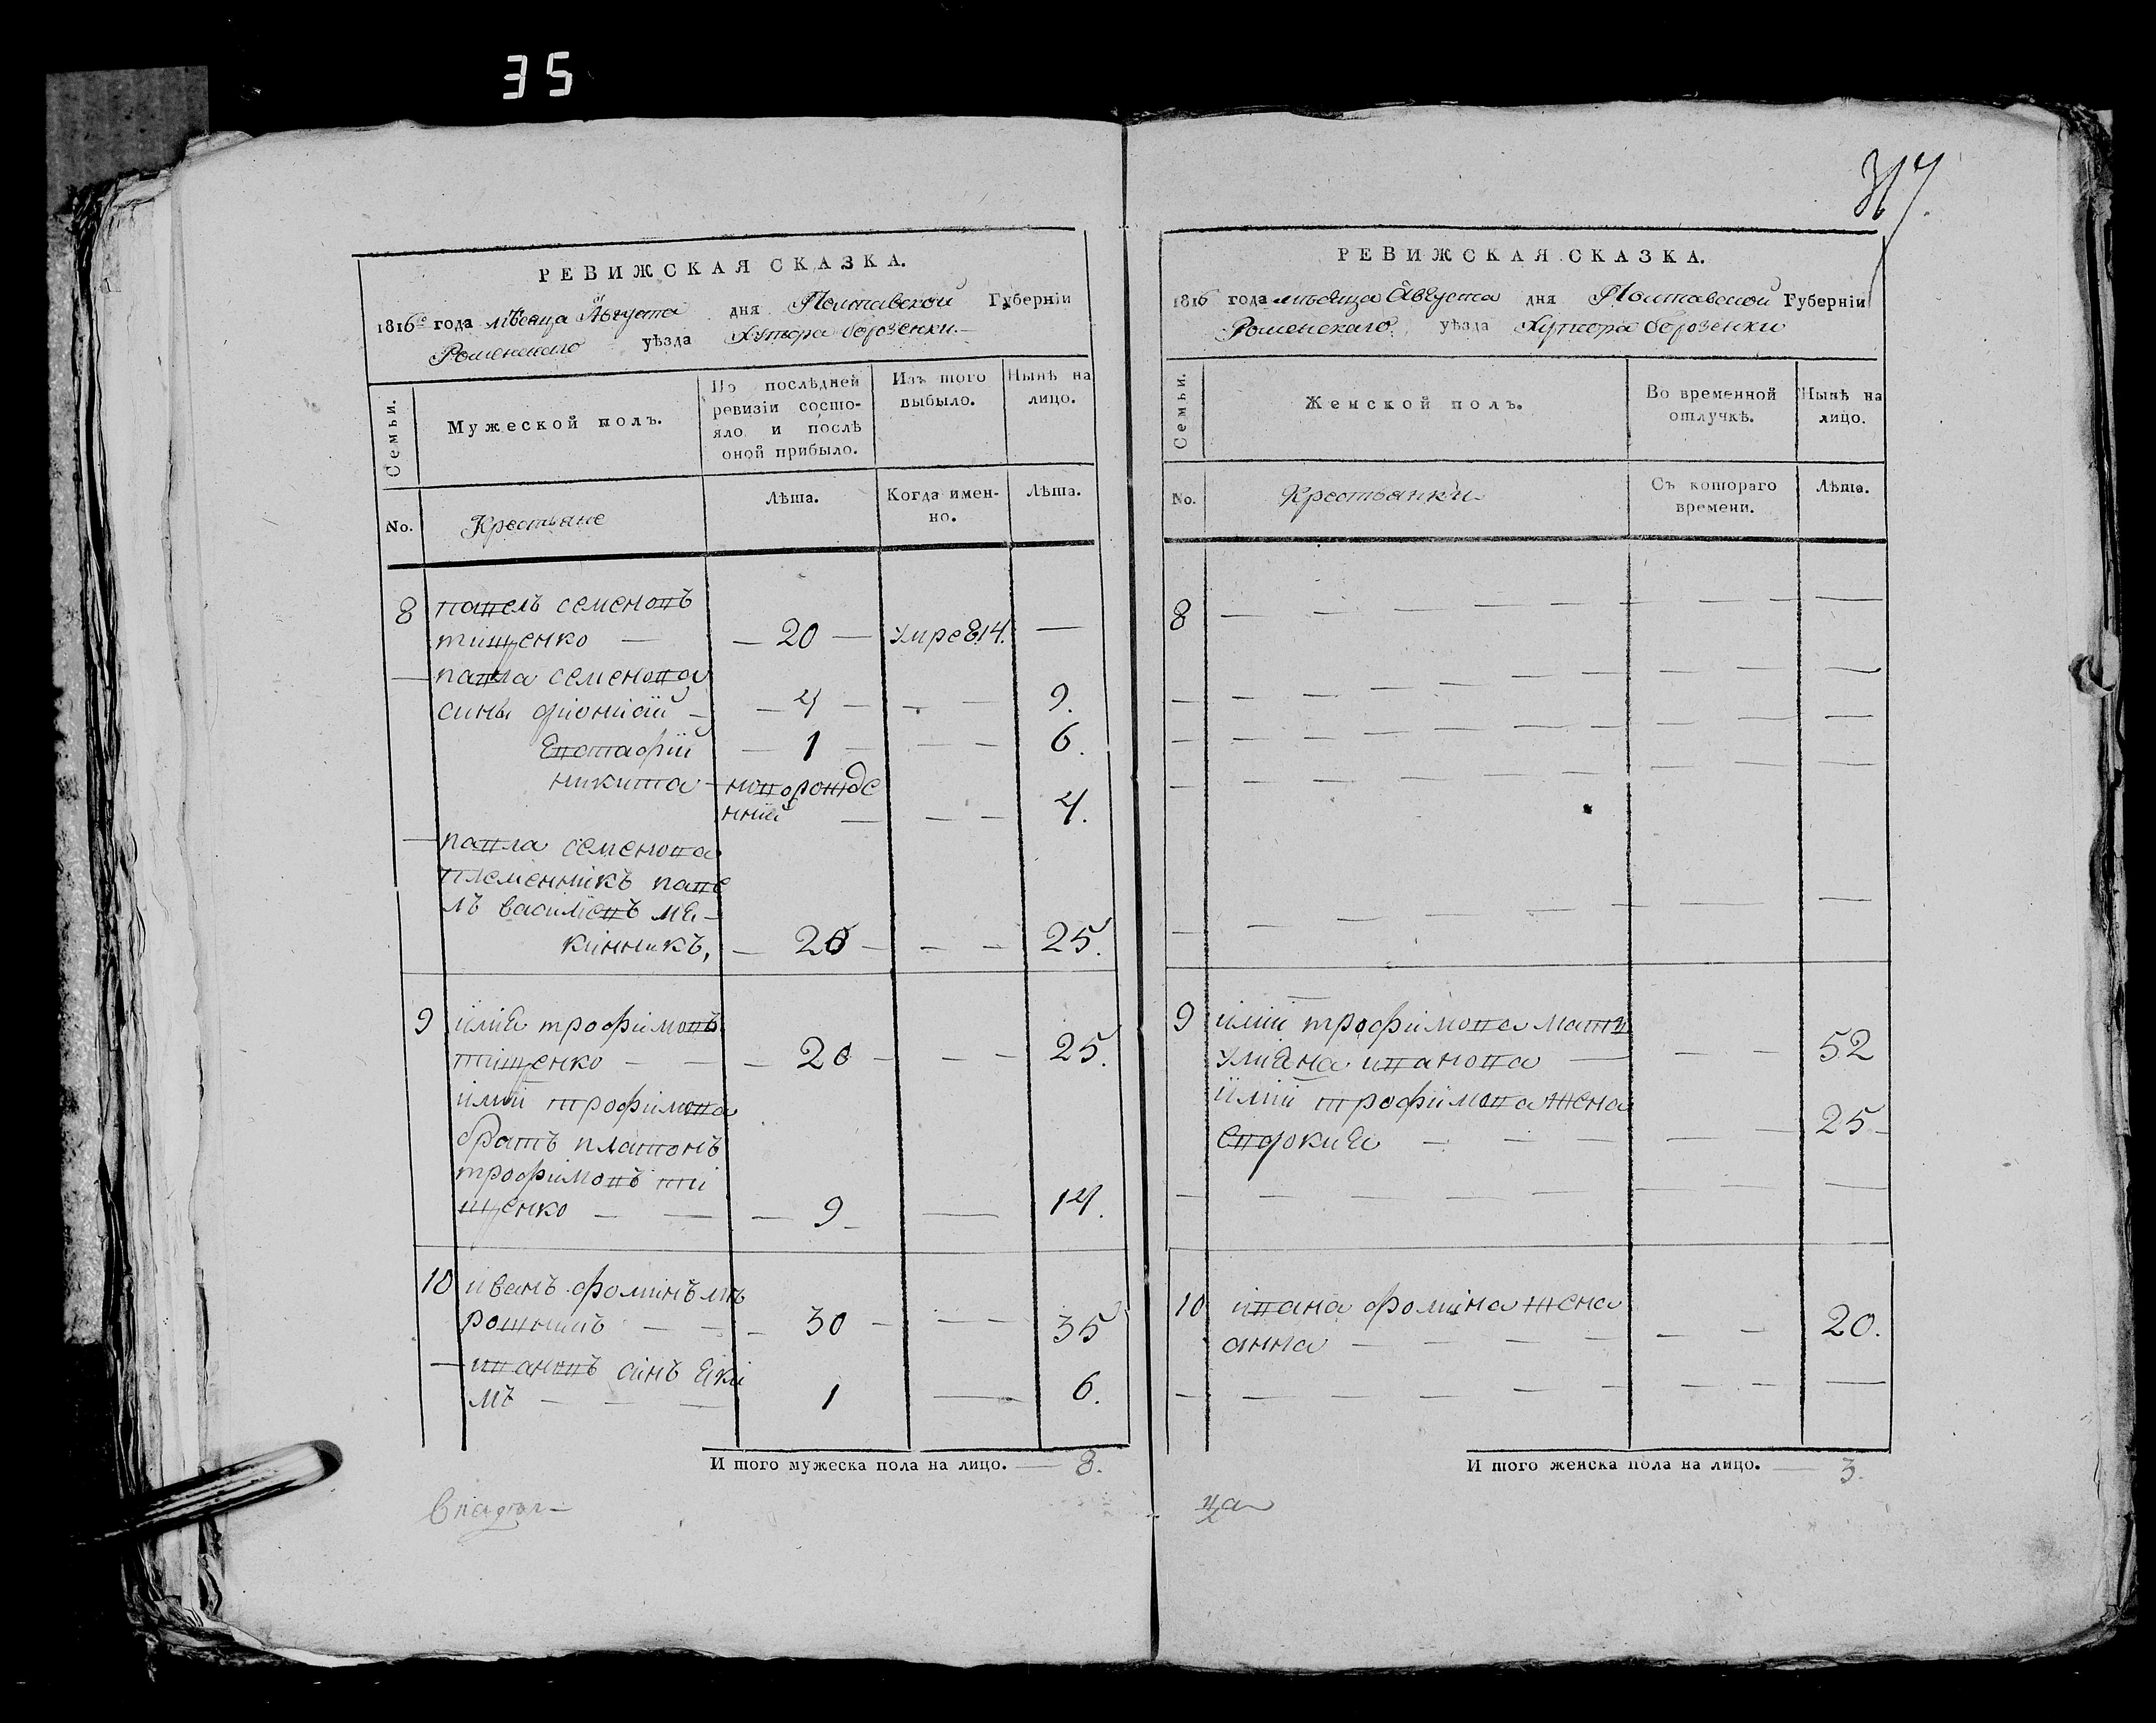 35
317
РЕВИЖСКАЯ СКАЗКА.
1816го года мѣсяца Августа дня Полтавской Губерніи
Роменскаго уѣзда Хутора борозенки
Семьи.
Мужеской полъ.
По послѣдней
ревизіи состо-
яло и послѣ
оной прибыло.
Изъ того
выбыло.
Нынѣ на
лицо.
No.
Крестьяне
Лѣта.
Когда имен-
но.
Лѣта.
8 павелъ семеновъ
тищенко — 20 — умре 814. —
— павла семенова
сины — 4 — — 9.
Евстафій — 1 — — 6.
никита — новорожде
нній — — 4.
— павла семенова
племенникъ паве
лъ василіевъ мя-
кинникъ, — 20 — — 25.
9 илія трофимовъ
тищенко — 20 — — 25.
иліи трофимова
братъ платонъ
трофимовъ ти
щенко — 9 — — 14.
10 иванъ фоминъ мѣ
рошникъ — 30 — — 35
— ивановъ синъ Яки
мъ — 1 — 6.
И того мужеска пола на лицо. — 8.
РЕВИЖСКАЯ СКАЗКА.
1816 года мѣсяца Августа дня Полтавской Губерніи
Роменскаго уѣзда Хутора борозенки
Семьи.
Женской полъ.
Во временной
отлучкѣ.
Нынѣ на
лицо.
No.
Крестьянки
Съ котораго
времени.
Лѣта.
8
9 иліи трофимова мать
улияна иванова — — 52
иліи трофимова жена
Евдокия — — 25
10 ивана фомина жена
анна — — 20.
И того женска пола на лицо. — 3.